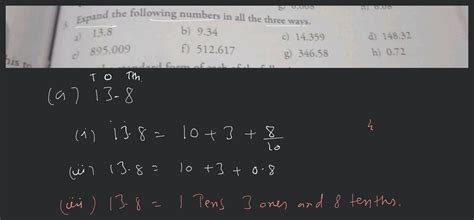 3. Expand the following numbers in all the three ways.
a) 13.8 b) 9.34 c) 14.359 d) 148.32
e) 895.009 f) 512.617 g) 346.58 h) 0.72
T O Th.
(a) 13.8
(i) 13.8 = 10 + 3 + 8/10
(ii) 13.8 = 10 + 3 + 0.8
(iii) 13.8 = 1 Tens 3 ones and 8 tenths.